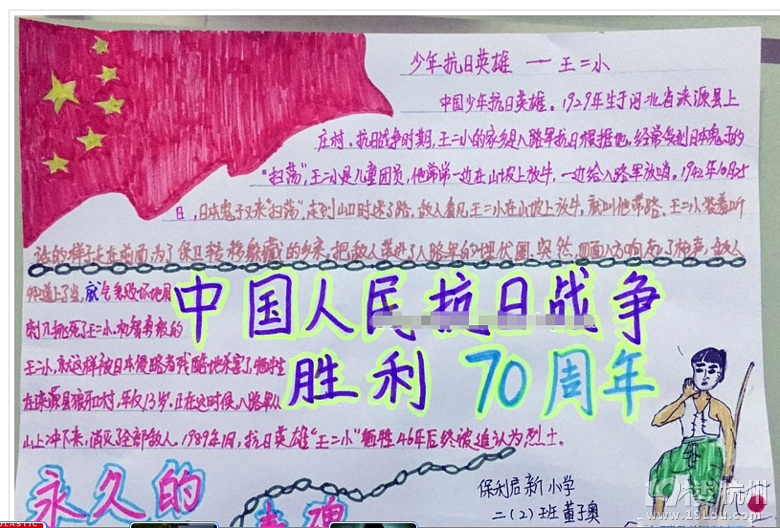 少年抗日英雄 — 王二小
中国少年抗日英雄。1929年生于河北省涞源县上
庄村。抗日战争时期,王二小的家乡是八路军抗日根据地,经常受到日本鬼子的
"扫荡",王二小是儿童团员,他常常一边在山坡上放牛,一边给八路军放哨。1942年10月25
日,日本鬼子又来"扫荡",走到山口时迷了路,敌人看见王二小在山坡上放牛,就叫他带路。王二小装着听
话的样子走在前面,为了保卫转移躲藏的乡亲,把敌人带进了八路军的埋伏圈。突然,四面八方响起了枪声,敌人
知道上了当,就气急败坏地用
刺刀挑死了王二小。机智勇敢的
王二小,就这样被日本侵略者残酷地杀害了,牺牲
在涞源县狼牙口村,年仅13岁。正在这时候,八路军从
山上冲下来,消灭了全部敌人。1989年1月,抗日英雄"王二小"牺牲46年后终被追认为烈士。
中国人民抗日战争
胜利 70周年
永久的
保利启新小学
二(2)班 董子奥
19楼杭州
www.19lou.com
SCHOLASTIC